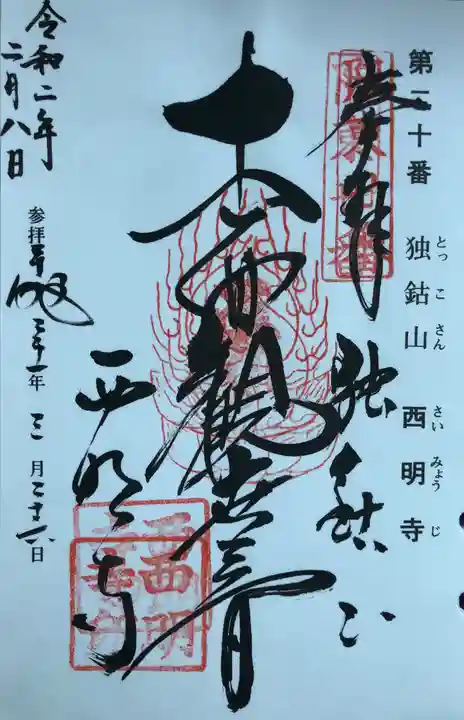 第二十番 独鈷山 西明寺
とっ こ さん さい みょう じ
奉拝 独鈷山
坂東二十番
十一面観世音
西明寺
西明寺
参拝 平成 三十一年 三月二十六日
令和二年
二月八日